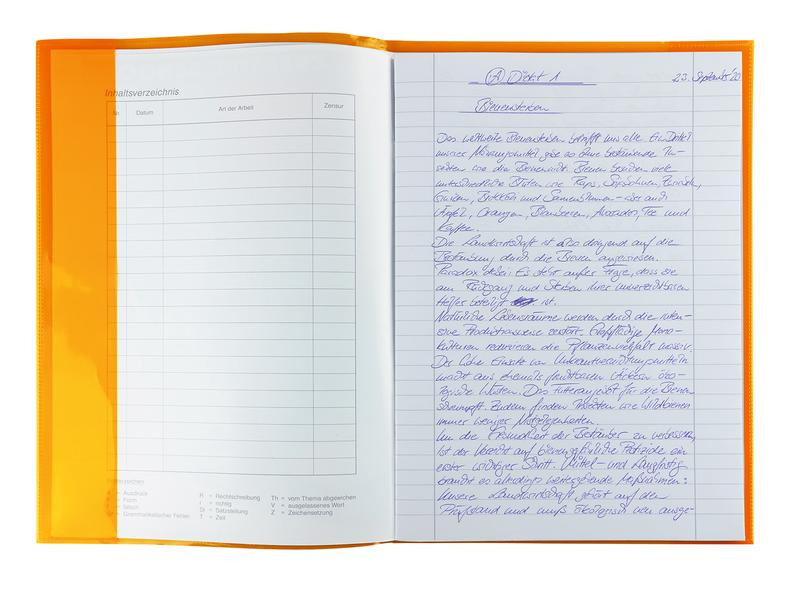 Inhaltsverzeichnis
Nr. Datum Art der Arbeit Zensur
A = Ausdruck
F = Form
f = falsch
G = Grammatikalischer Fehler
R = Rechtschreibung
r = richtig
St = Satzstellung
T = Zeit
Th = vom Thema abgewichen
V = ausgelassenes Wort
Z = Zeichensetzung
Ⓐ Diktat 1 23. September 20
Bienensterben
Das weltweite Bienensterben betrifft uns alle. Ein Drittel
unserer Nahrungsmittel gäbe es ohne bestäubende In-
sekten wie die Bienen nicht. Bienen bestäuben viele
unterschiedliche Blüten wie Raps, Sojabohnen,
Gurken, Brokkoli und Sonnenblumen – aber auch
Äpfel, Orangen, Blaubeeren, Avocados, Tee und
Kaffee.
Die Landwirtschaft ist also dringend auf die
Bestäubung durch die Bienen angewiesen.
Paradox dabei: Es steht außer Frage, dass sie
am Rückgang und Sterben ihrer unverzichtbaren
Helfer beteiligt ist.
Natürliche Lebensräume werden durch die inten-
sive Produktionsweise zerstört. Großflächige Mono-
kulturen reduzieren die Pflanzenvielfalt massiv.
Der hohe Einsatz von Unkrautvernichtungsmitteln
macht aus ehemals fruchtbaren Äckern ökolo-
gische Wüsten. Das Futterangebot für die Bienen
schrumpft. Zudem finden Insekten wie Wildbienen
immer weniger Nistgelegenheiten.
Um die Gesundheit der Bestäuber zu verbessern,
ist der Verzicht auf bienengefährliche Pestizide ein
erster wichtiger Schritt. Mittel- und langfristig
braucht es allerdings weitergehende Maßnahmen:
Unsere Landwirtschaft gehört auf den
Prüfstand und muß ökologisch neu ausge-